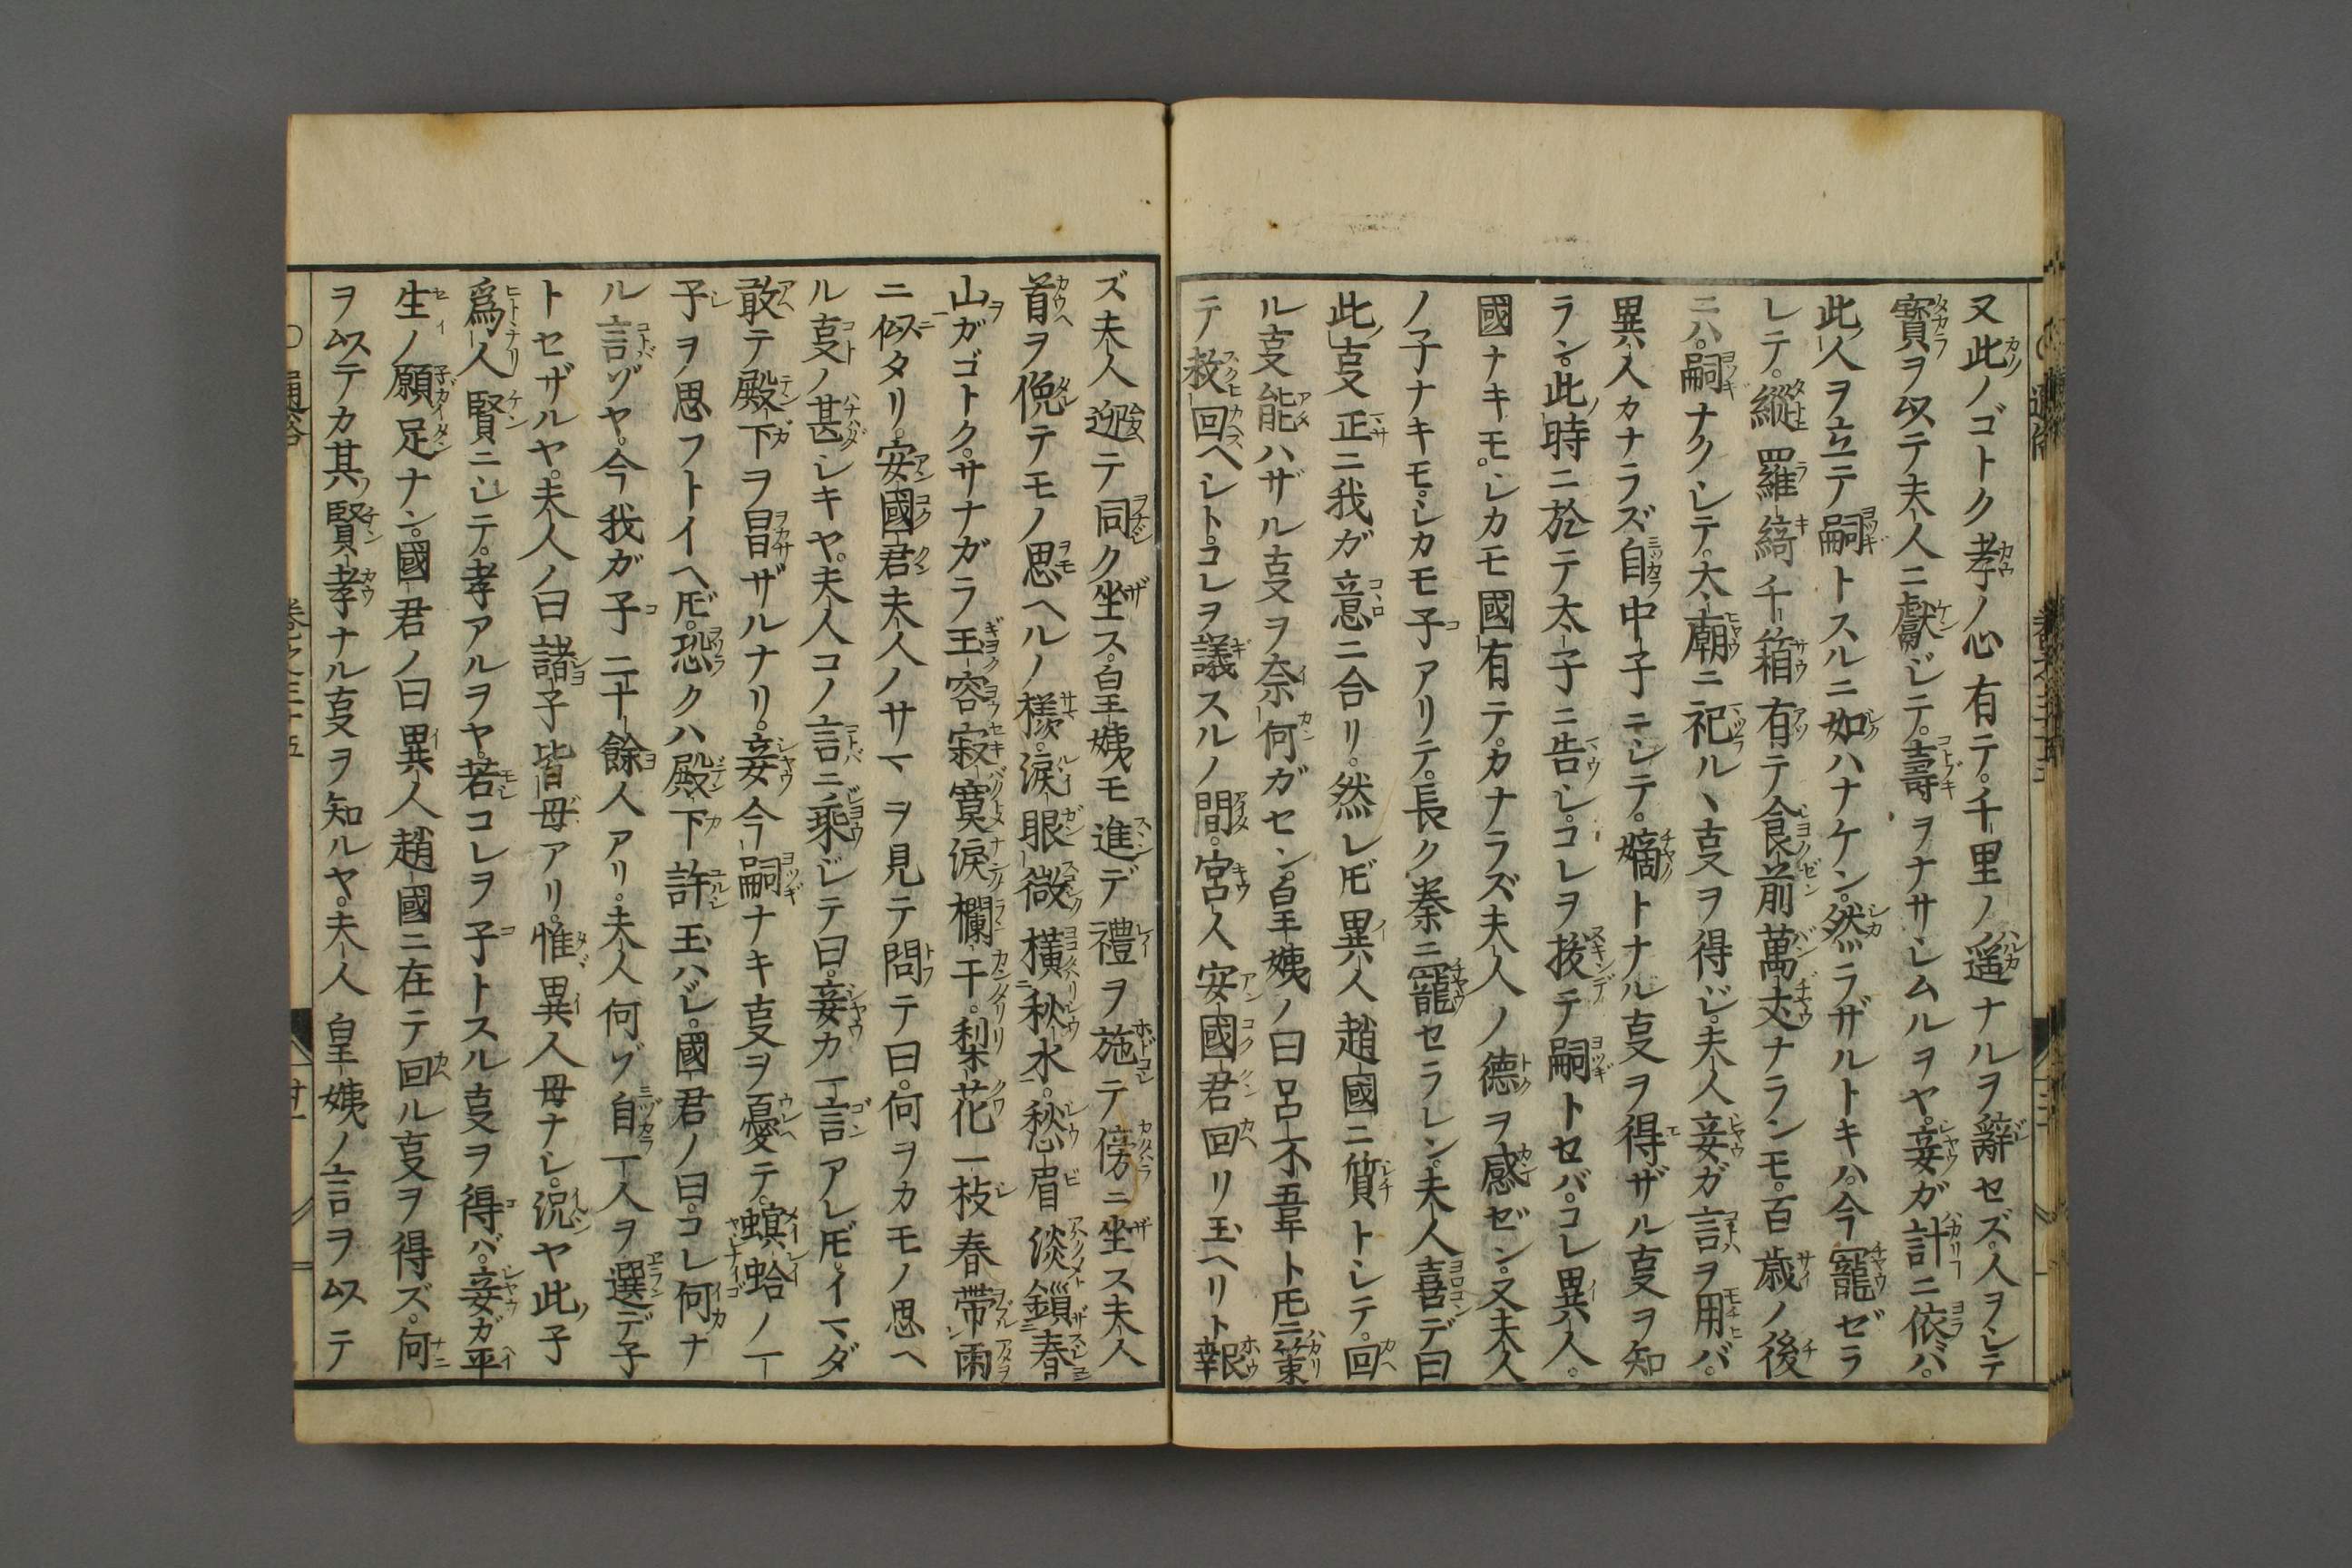 又此ノゴトク孝ノ心有テ。千里ノ遥ナルヲ辭セズ。人ヲシテ
寳ヲ以テ夫人ニ獻ジテ。壽ヲナサシムルヲヤ。妾ガ計ニ依バ。
此人ヲ立テ嗣トスルニ如ハナケン。然ラザルトキハ。今寵ゼラ
レテ。縱羅綺千箱有テ食前萬丈ナランモ。百歳ノ後
ニハ。嗣ナクシテ。太廟ニ祀ル丶叓ヲ得ジ。夫人妾ガ言ヲ用バ。
異人カナラズ自中子ニシテ。嫡トナル叓ヲ得ザル叓ヲ知
ラン。此時ニ於テ太子ニ告シ。コレヲ拔テ嗣トセバ。コレ異人。
國ナキモ。シカモ國有テ。カナラズ夫人ノ德ヲ感ゼン。又夫人
ノ子ナキモ。シカモ子アリテ。長ク秦ニ寵セラレン。夫人喜デ曰
此叓正ニ我ガ意ニ合リ。然レ𪜈異人趙國ニ質トシテ。回
ル叓能ハザル叓ヲ奈何ガセン。皇姨ノ曰呂不韋ト𪜈ニ策
テ救回ヘシト。コレヲ議スルノ間。宮人安國君回リ玉ヘリト報
ズ夫人迎テ同ク坐ス。皇姨モ進デ禮ヲ施テ傍ニ坐ス夫人
首ヲ俛テモノ思ヘルノ樣。淚眼微橫秋水。愁眉淡鎖春
山ガゴトク。サナガラ玉容寂寞淚欄干。梨花一枝春帶雨
ニ似タリ。安國君夫人ノサマヲ見テ問テ曰。何ヲカモノ思ヘ
ル叓ノ甚シキヤ。夫人コノ言ニ乘ジテ曰。妾カ一言アレ𪜈。イマダ
敢テ殿下ヲ冒ザルナリ。妾今嗣ナキ叓ヲ憂テ。螟蛉ノ一
子ヲ思フトイヘ𪜈。恐クハ殿下許玉ハジ。國君ノ曰。コレ何ナ
ル言ゾヤ。今我ガ子二十餘人アリ。夫人何ゾ自一人ヲ選デ子
トセザルヤ。夫人ノ曰諸子皆母アリ。惟異人母ナシ。況ヤ此子
爲人賢ニシテ。孝アルヲヤ。若コレヲ子トスル叓ヲ得バ。妾ガ平
生ノ願足ナン。國君ノ曰異人趙國ニ在テ回ル叓ヲ得ズ。何
ヲ以テカ其賢孝ナル叓ヲ知ルヤ。夫人皇姨ノ言ヲ以テ